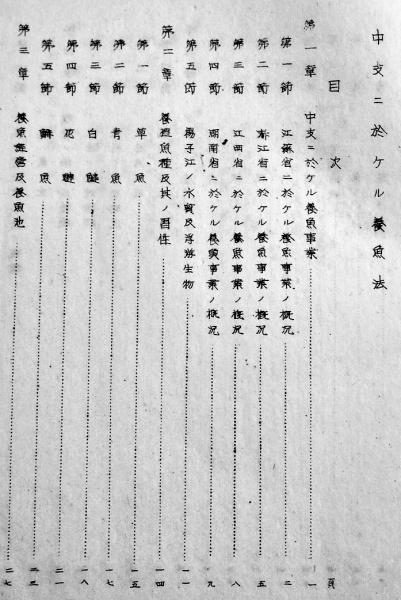 中支ニ於ケル養魚法
目次
頁
第一章 中支ニ於ケル養魚事業 一
第一節 江蘇省ニ於ケル養魚事業ノ概況 二
第二節 浙江省ニ於ケル養魚事業ノ概況 五
第三節 江西省ニ於ケル養魚事業ノ概況 八
第四節 湖南省ニ於ケル養魚事業ノ概況 九
第五節 揚子江ノ水質及浮游生物 一一
第二章 養殖魚種及其ノ習性 一四
第一節 草魚 一五
第二節 青魚 一七
第三節 白鰱 一八
第四節 花鰱 二一
第五節 魚 二三
第三章 養魚経営及養魚池 二七